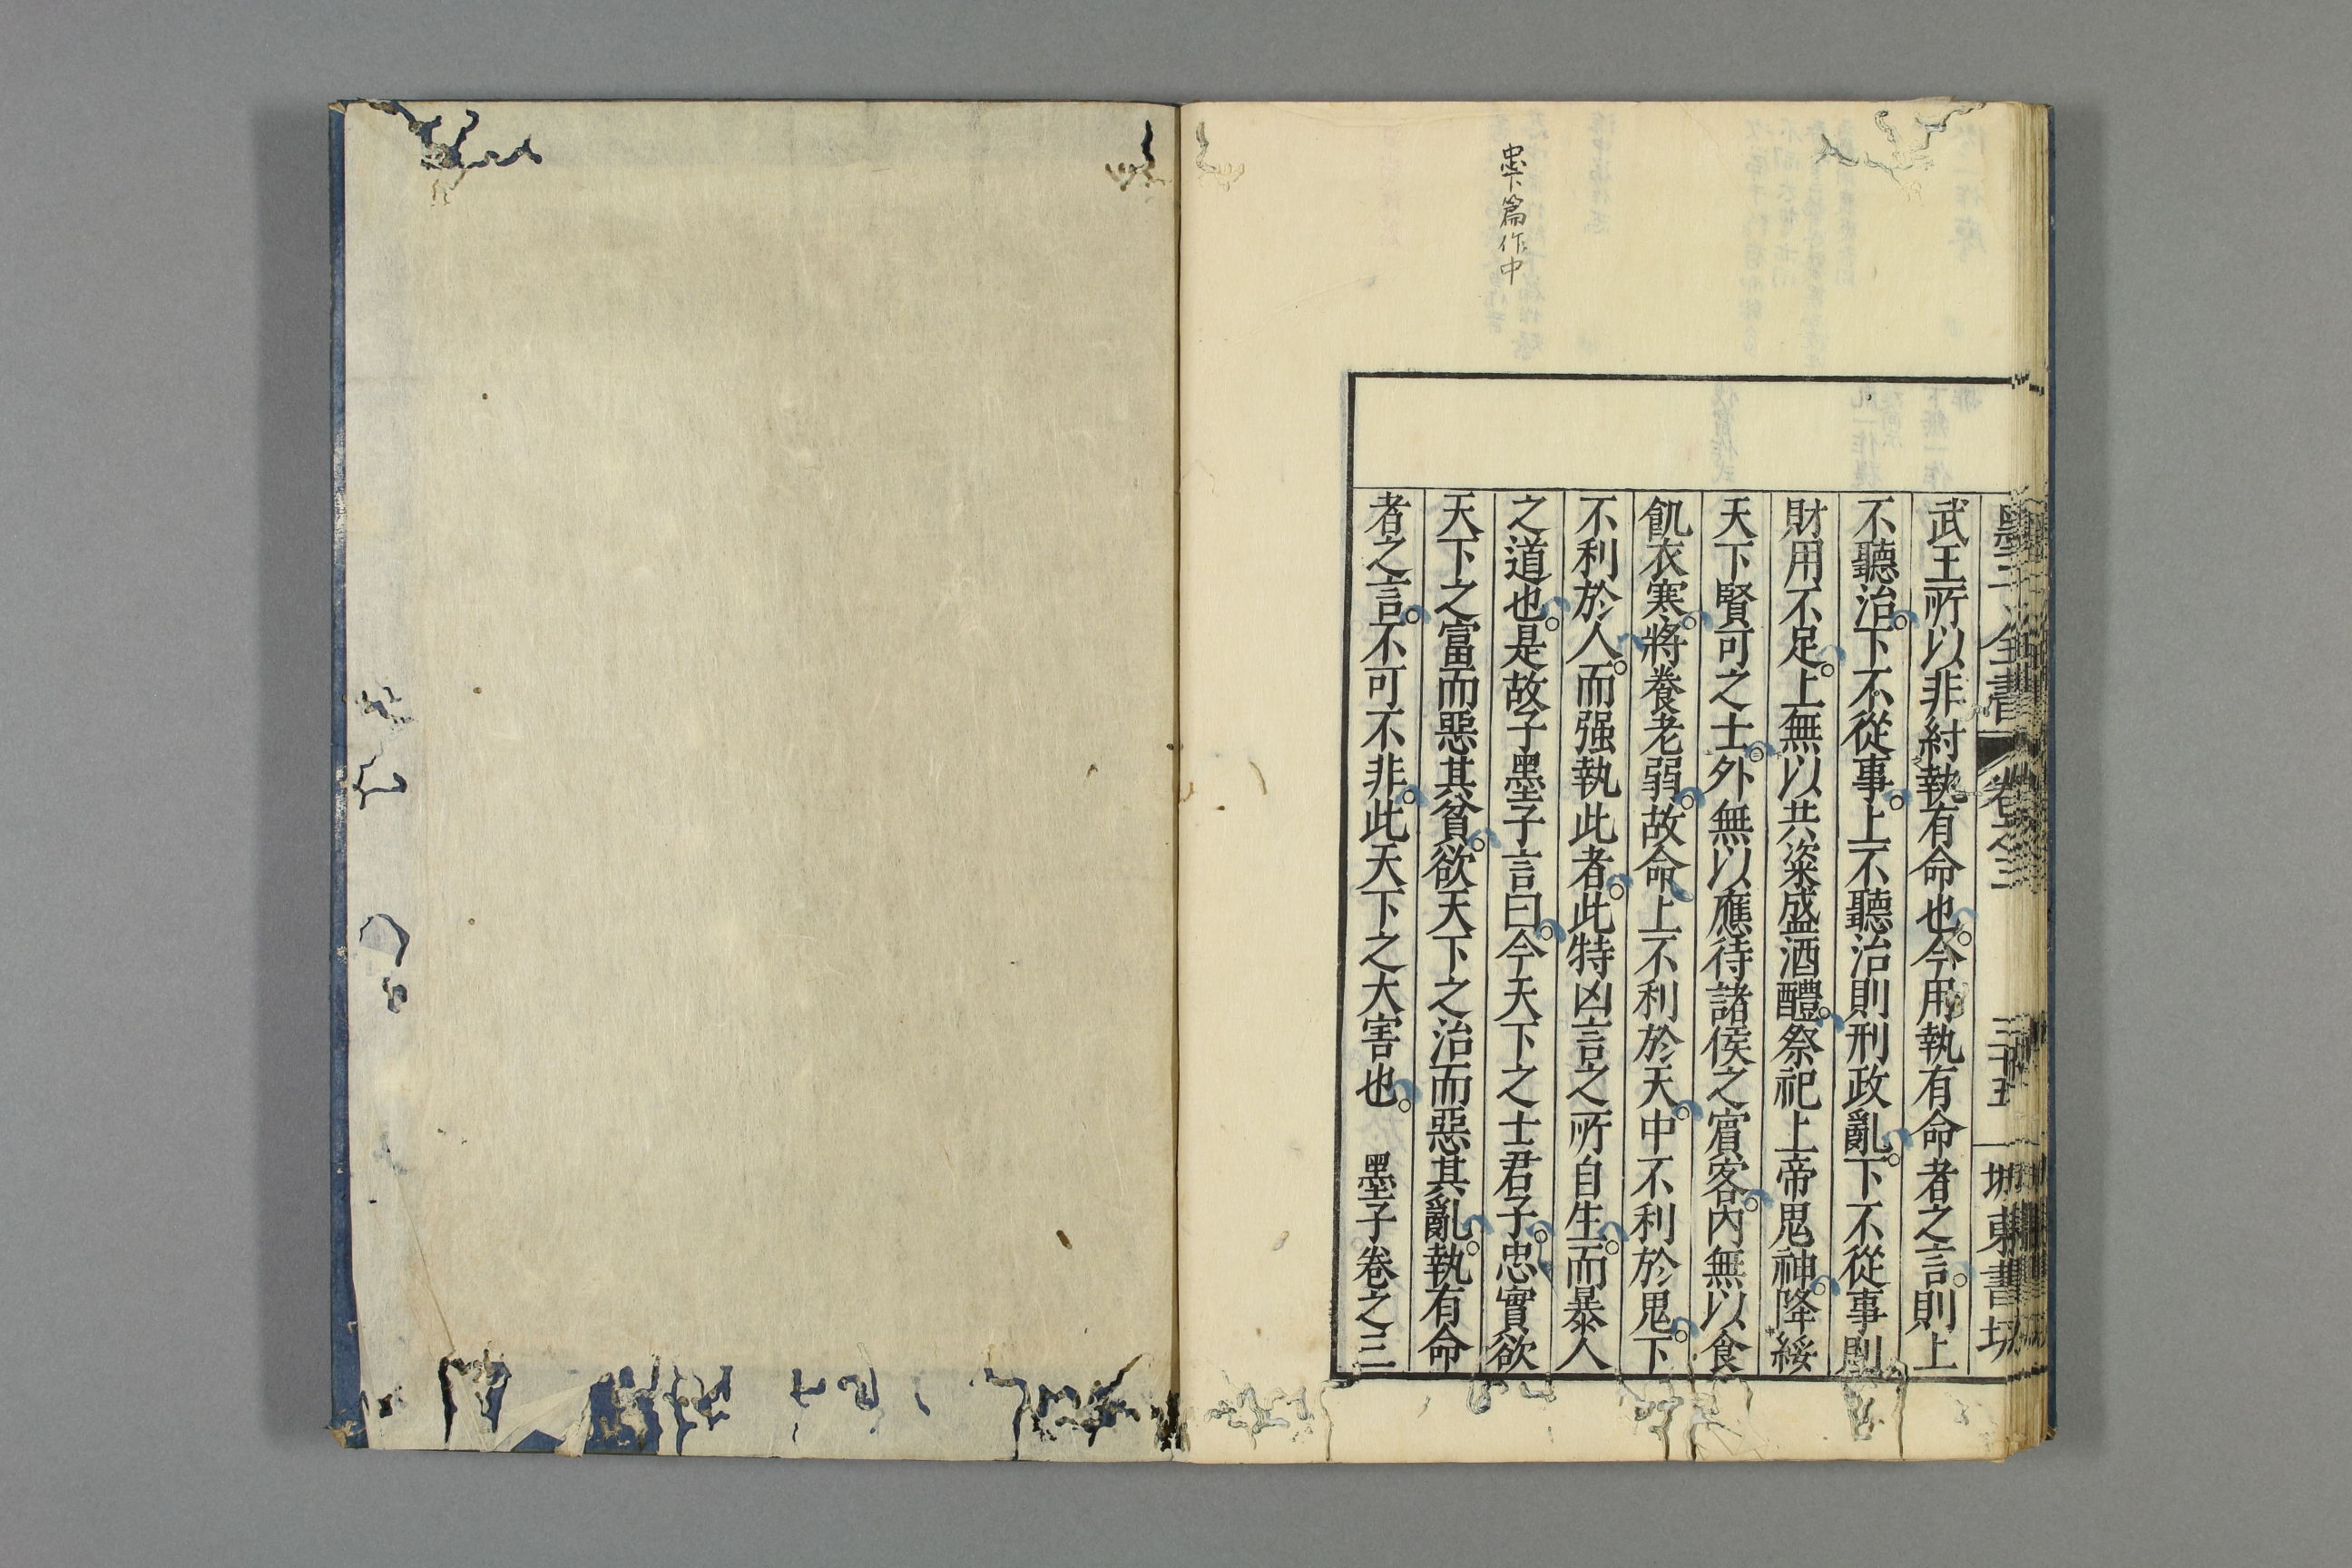 忠下篇作中
武王所以非紂執有命也。今用執有命者之言。則上
不聽治。下不從事。上不聽治則刑政亂。下不從事則
財用不足。上無以共粢盛酒醴。祭祀上帝鬼神。降綏
天下賢可之士。外無以應待諸侯之賓客。內無以食
飢衣寒。將養老弱。故命上不利於天。中不利於鬼。下
不利於人。而强執此者。此特凶言之所自生。而暴人
之道也。是故子墨子言曰。今天下之士君子。忠實欲
天下之富而惡其貧。欲天下之治而惡其亂。執有命
者之言。不可不非。此天下之大害也。 墨子卷之三